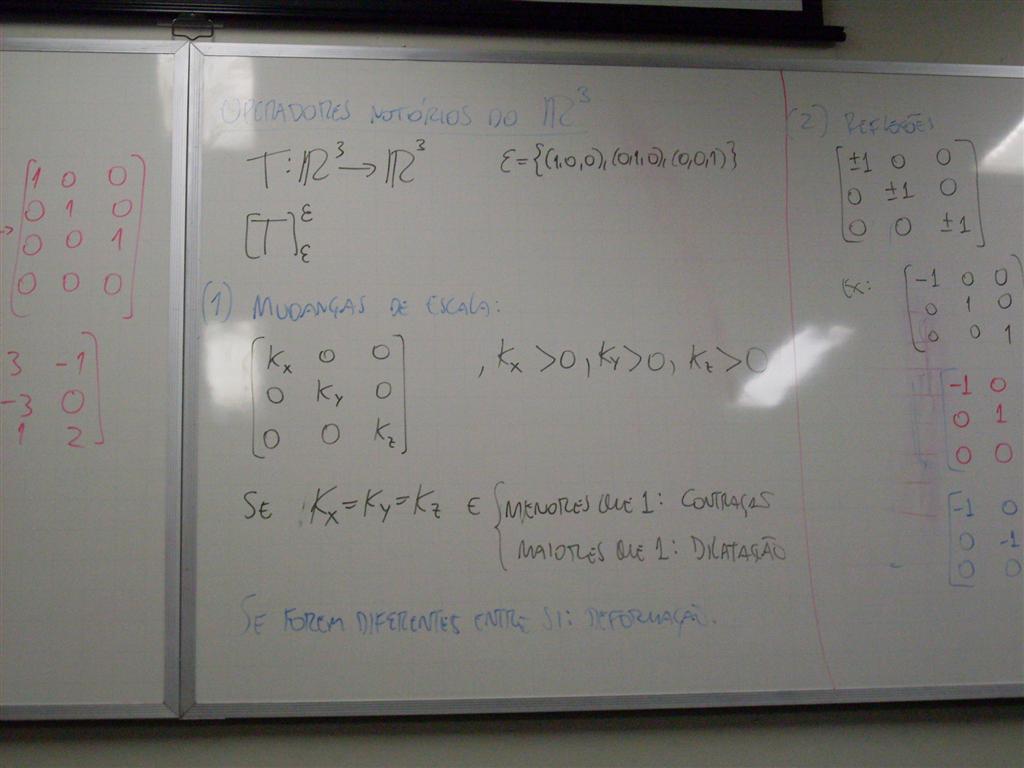 1 0 0
0 1 0
→ 0 0 1
0 0 0
3 -1
-3 0
1 2
OPERADORES NOTÓRIOS DO ℝ³
T: ℝ³ → ℝ³ ε = {(1,0,0),(0,1,0),(0,0,1)}
[T]^ε_ε
(1) MUDANÇAS DE ESCALA:
Kx 0 0
0 Ky 0
0 0 Kz
, Kx > 0, Ky > 0, Kz > 0
SE Kx = Ky = Kz E { MENORES QUE 1: CONTRAÇAS
MAIORES QUE 1: DILATAÇÃO
SE FOREM DIFERENTES ENTRE SI: DEFORMAÇÃO.
(2) REFLEXÕES
±1 0 0
0 ±1 0
0 0 ±1
EX: -1 0 0
0 1 0
0 0 1
-1 0
0 1
0 0
-1 0
0 -1
0 0